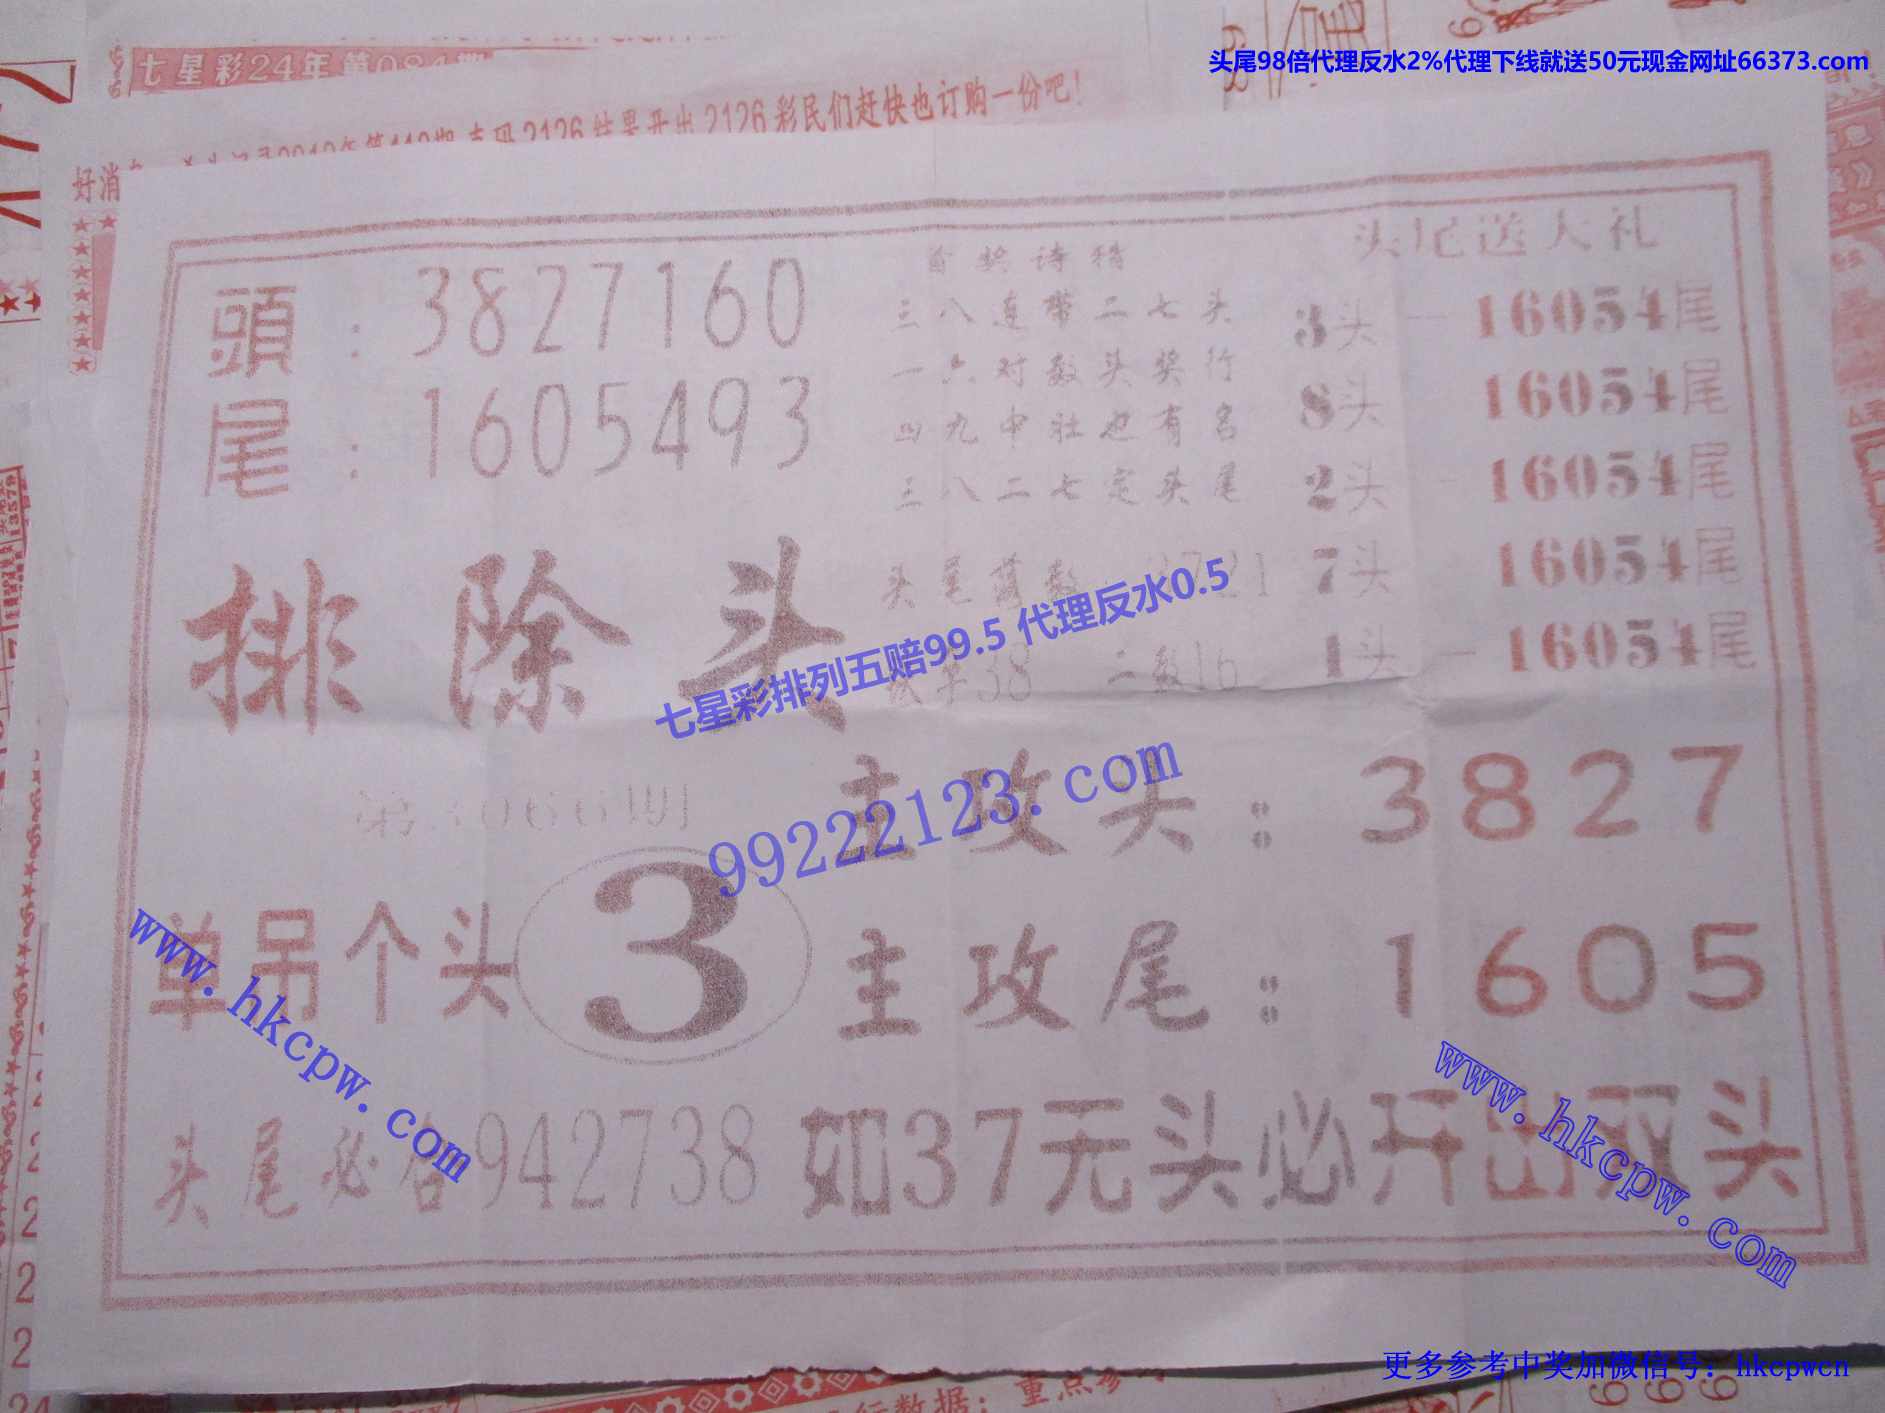 头尾98倍代理反水2%代理下线就送50元现金网址66373.com
七星彩24年第084期
2126 结果开出 2126 彩民们赶快也订购一份吧!
好消
頭：3827160
尾：1605493
排除头
单吊个头 3
头尾必合942738
首奖诗
三八连带二七头
一六对数头奖行
四九中肚也有名
三八二七定头尾
头尾
38 二数16
头尾送大礼
3头一16054尾
8头 16054尾
2头 16054尾
7头 16054尾
1头一16054尾
七星彩排列五赔99.5 代理反水0.5
99222123.com
主攻头：3827
主攻尾：1605
如37无头必开出双头
www.hkcpw.com
www.hkcpw.com
更多参考中奖加微信号：hkcpwcn
行数据：重点参